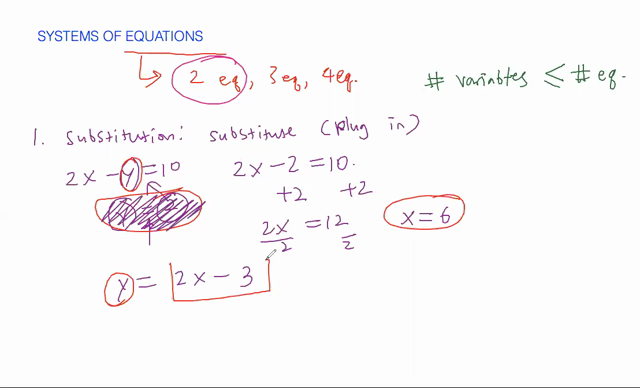 SYSTEMS OF EQUATIONS
2 eq, 3 eq, 4 eq.
# variables ≤ # eq.
1. substitution: substituse (plug in)
2x - y = 10
2x - 2 = 10.
+2 +2
2x/2 = 12/2
x = 6
y = 2x - 3